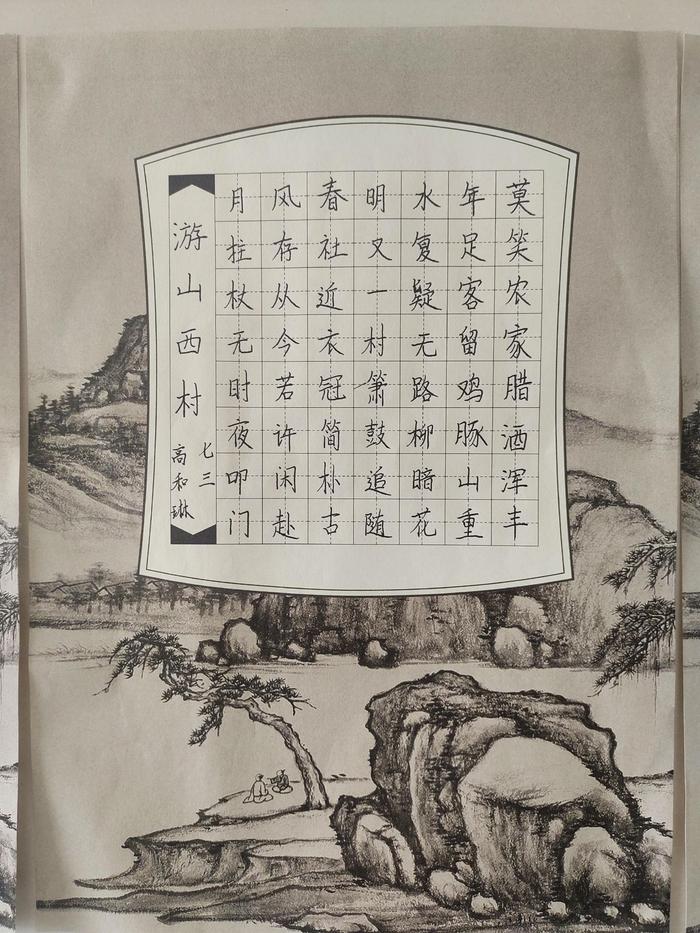 莫笑农家腊酒浑丰
年足客留鸡豚山重
水复疑无路柳暗花
明又一村箫鼓追随
春社近衣冠简朴古
风存从今若许闲赴
月拄杖无时夜叩门
游山西村
七三
高和琳